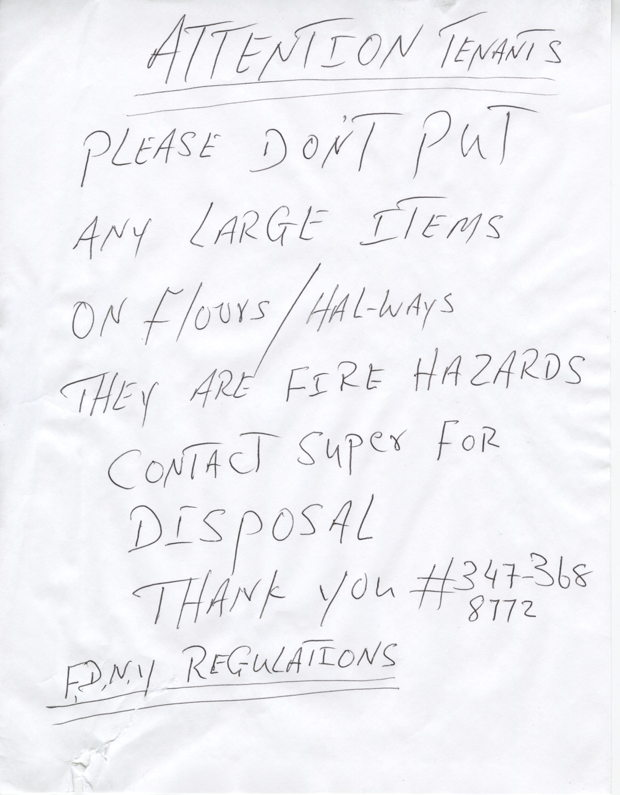 ATTENTION TENANTS
PLEASE DON'T PUT
ANY LARGE ITEMS
ON FlOURS/HAL-WAYS
THEY ARE FIRE HAZARDS
CONTACT SUPER FOR
DISPOSAL
THANK YOU #347-368
8772
F.D.N.Y REGULATIONS